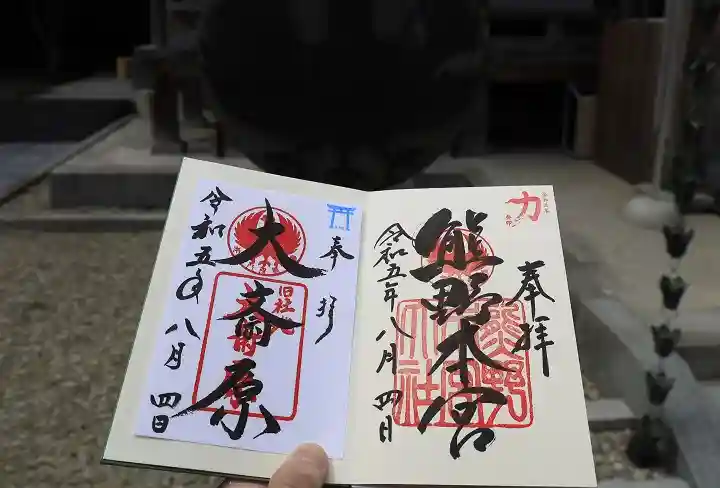 奉拝
熊野本宮
令和五年八月四日
力
熊野
大社
奉拝
大斎原
令和五年八月四日
旧社地